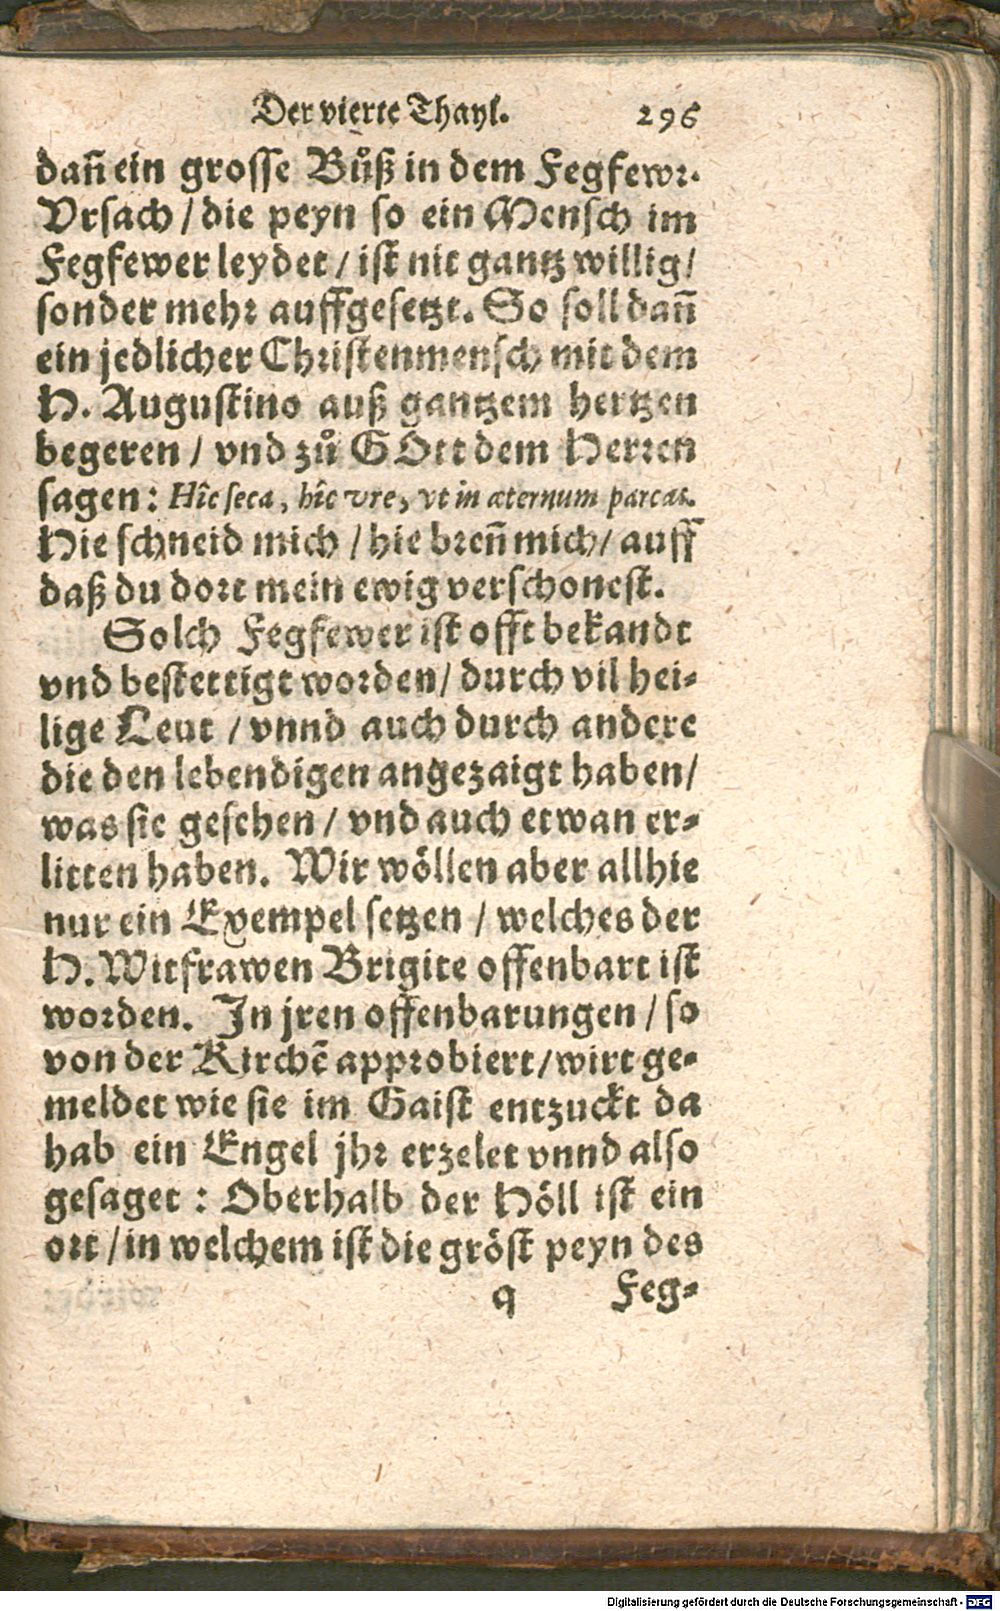 Der vierte Thayl. 296
dañ ein grosse Bůß in dem Fegfewr.
Vrsach / die peyn so ein Mensch im
Fegfewer leydet / ist nit gantz willig /
sonder mehr auffgesetzt. So soll dañ
ein jedlicher Christenmensch mit dem
H. Augustino auß gantzem hertzen
begeren / vnd zů GOtt dem Herren
sagen: Hîc seca, hîc vre, vt in æternum parcas.
Hie schneid mich / hie breñ mich / auff
daß du dort mein ewig verschonest.
Solch Fegfewer ist offt bekandt
vnd bestettigt worden / durch vil hei-
lige Leut / vnnd auch durch andere
die den lebendigen angezaigt haben /
was sie gesehen / vnd auch etwan er-
litten haben. Wir wöllen aber allhie
nur ein Exempel setzen / welches der
H. Witfrawen Brigite offenbart ist
worden. In jren offenbarungen / so
von der Kirchē approbiert / wirt ge-
meldet wie sie im Gaist entzuckt da
hab ein Engel jhr erzelet vnnd also
gesaget : Oberhalb der Höll ist ein
ort / in welchem ist die gröst peyn des
q Feg-
Digitalisierung gefördert durch die Deutsche Forschungsgemeinschaft - DFG